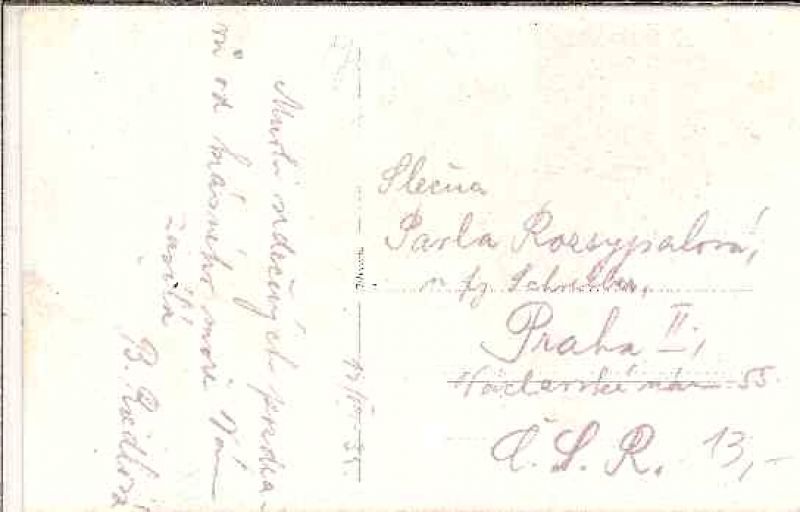 Mnoho srdečných pozdra-
vů od krásného moře Vám
zasílá
B.
Slečna
Pavla Rozsypalová,
u fy. Schreiber,
Praha II,
Václavské nám 55.
Č. S. R. 13,-